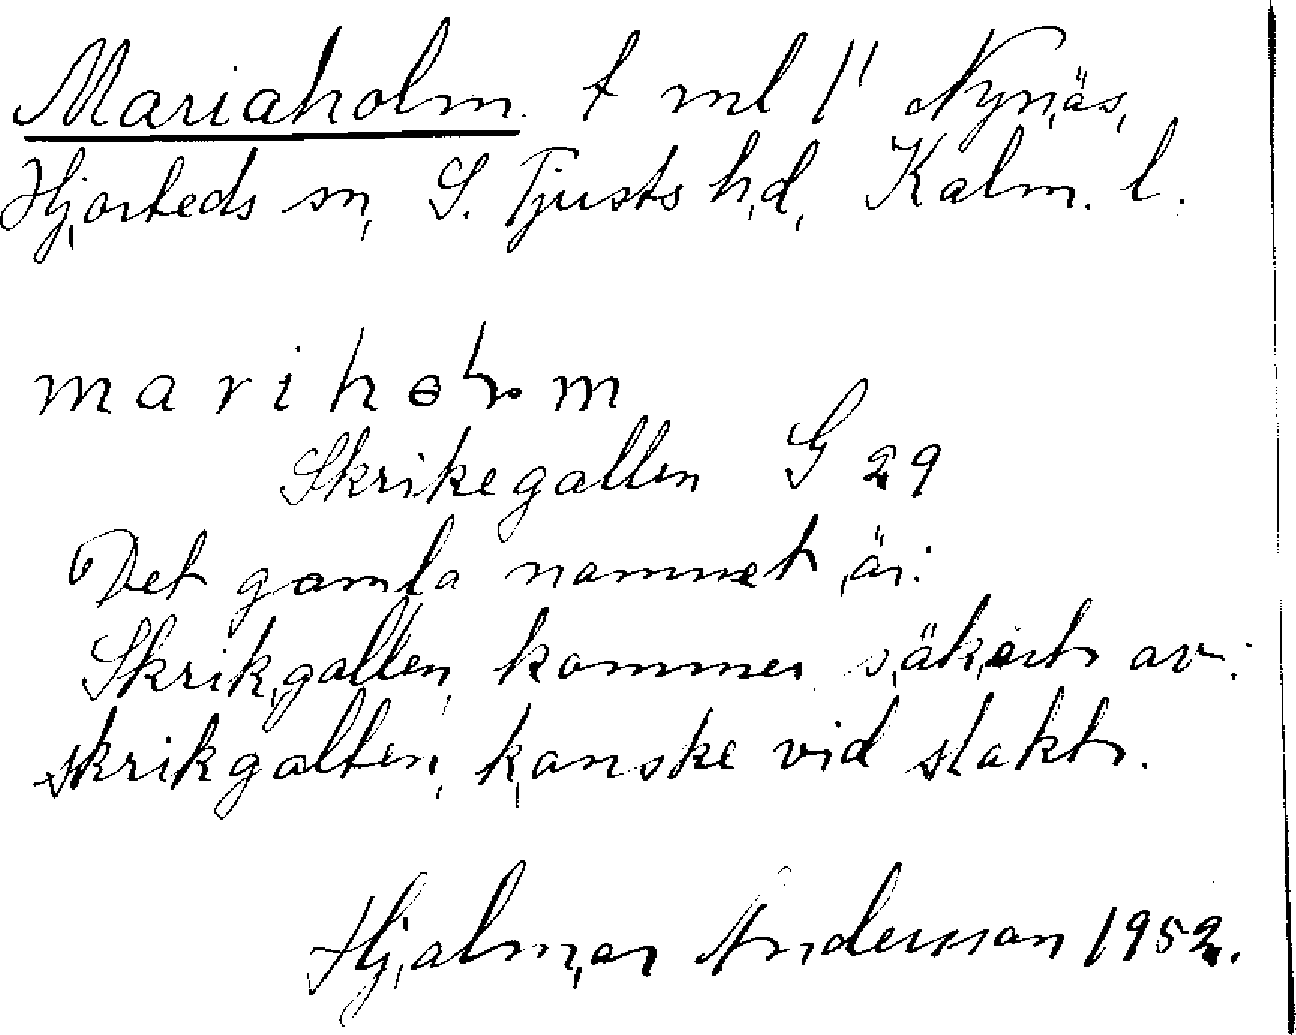 Mariaholm. t ml 1" Nynäs,
Hjorteds sn, S. Tjusts hd, Kalm. l.
mariholm
Skrikegallen G 29
Det gamla namnet är:
Skrikgallen, kommer säkert av:
skrikgalten, kanske vid slakt.
Hjalmar Andersson 1952.